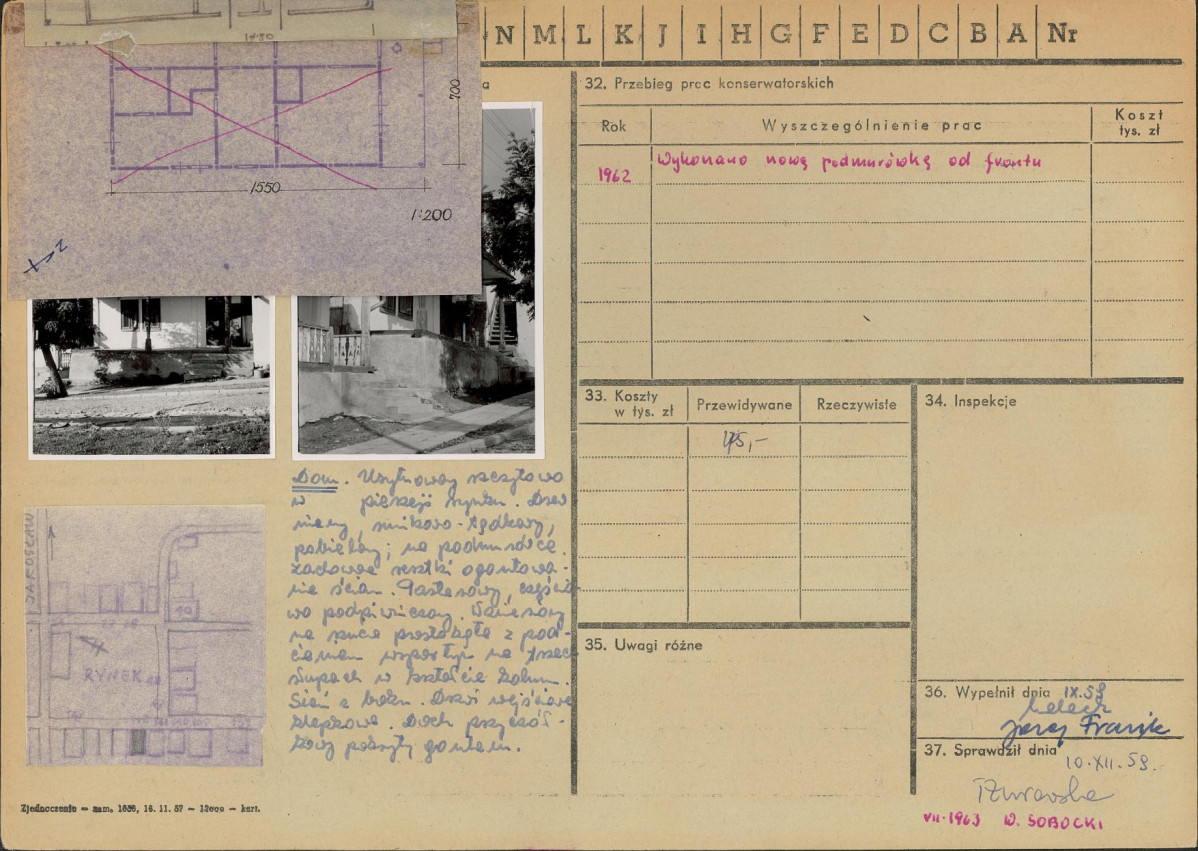 N M L K J I H G F E D C B A Nr
1450
700
1550
1:200
a
32. Przebieg prac konserwatorskich
Rok
Wyszczególnienie prac
Koszt
tys. zł
1962
Wykonano nową podmurówkę od frontu
33. Koszty
w tys. zł
Przewidywane
Rzeczywiste
34. Inspekcje
35. Uwagi różne
36. Wypełnił dnia IX.59
37. Sprawdził dnia
10.XII.59.
VII-1963 W. SOBOCKI
Dom. Usytuowany szczytowo
w pierzeji rynku. Drew
niany,
pobielany; na podmurówce.
resztki ogontowa-
nia ścian. Parterowy, częścio
wo podpiwniczony. Wzniesiony
na rzucie prostokąta z pod-
cieniem wspartym na trzech
słupach w kształcie kolumn.
Sień z boku. Drzwi wejściowe
klepkowe. Dach przyczół-
kowy pokryty gontem.
JAROSŁAW
RYNEK
Zjednoczenie — zam. 1636, 16. 11. 57 — 12000 — kart.